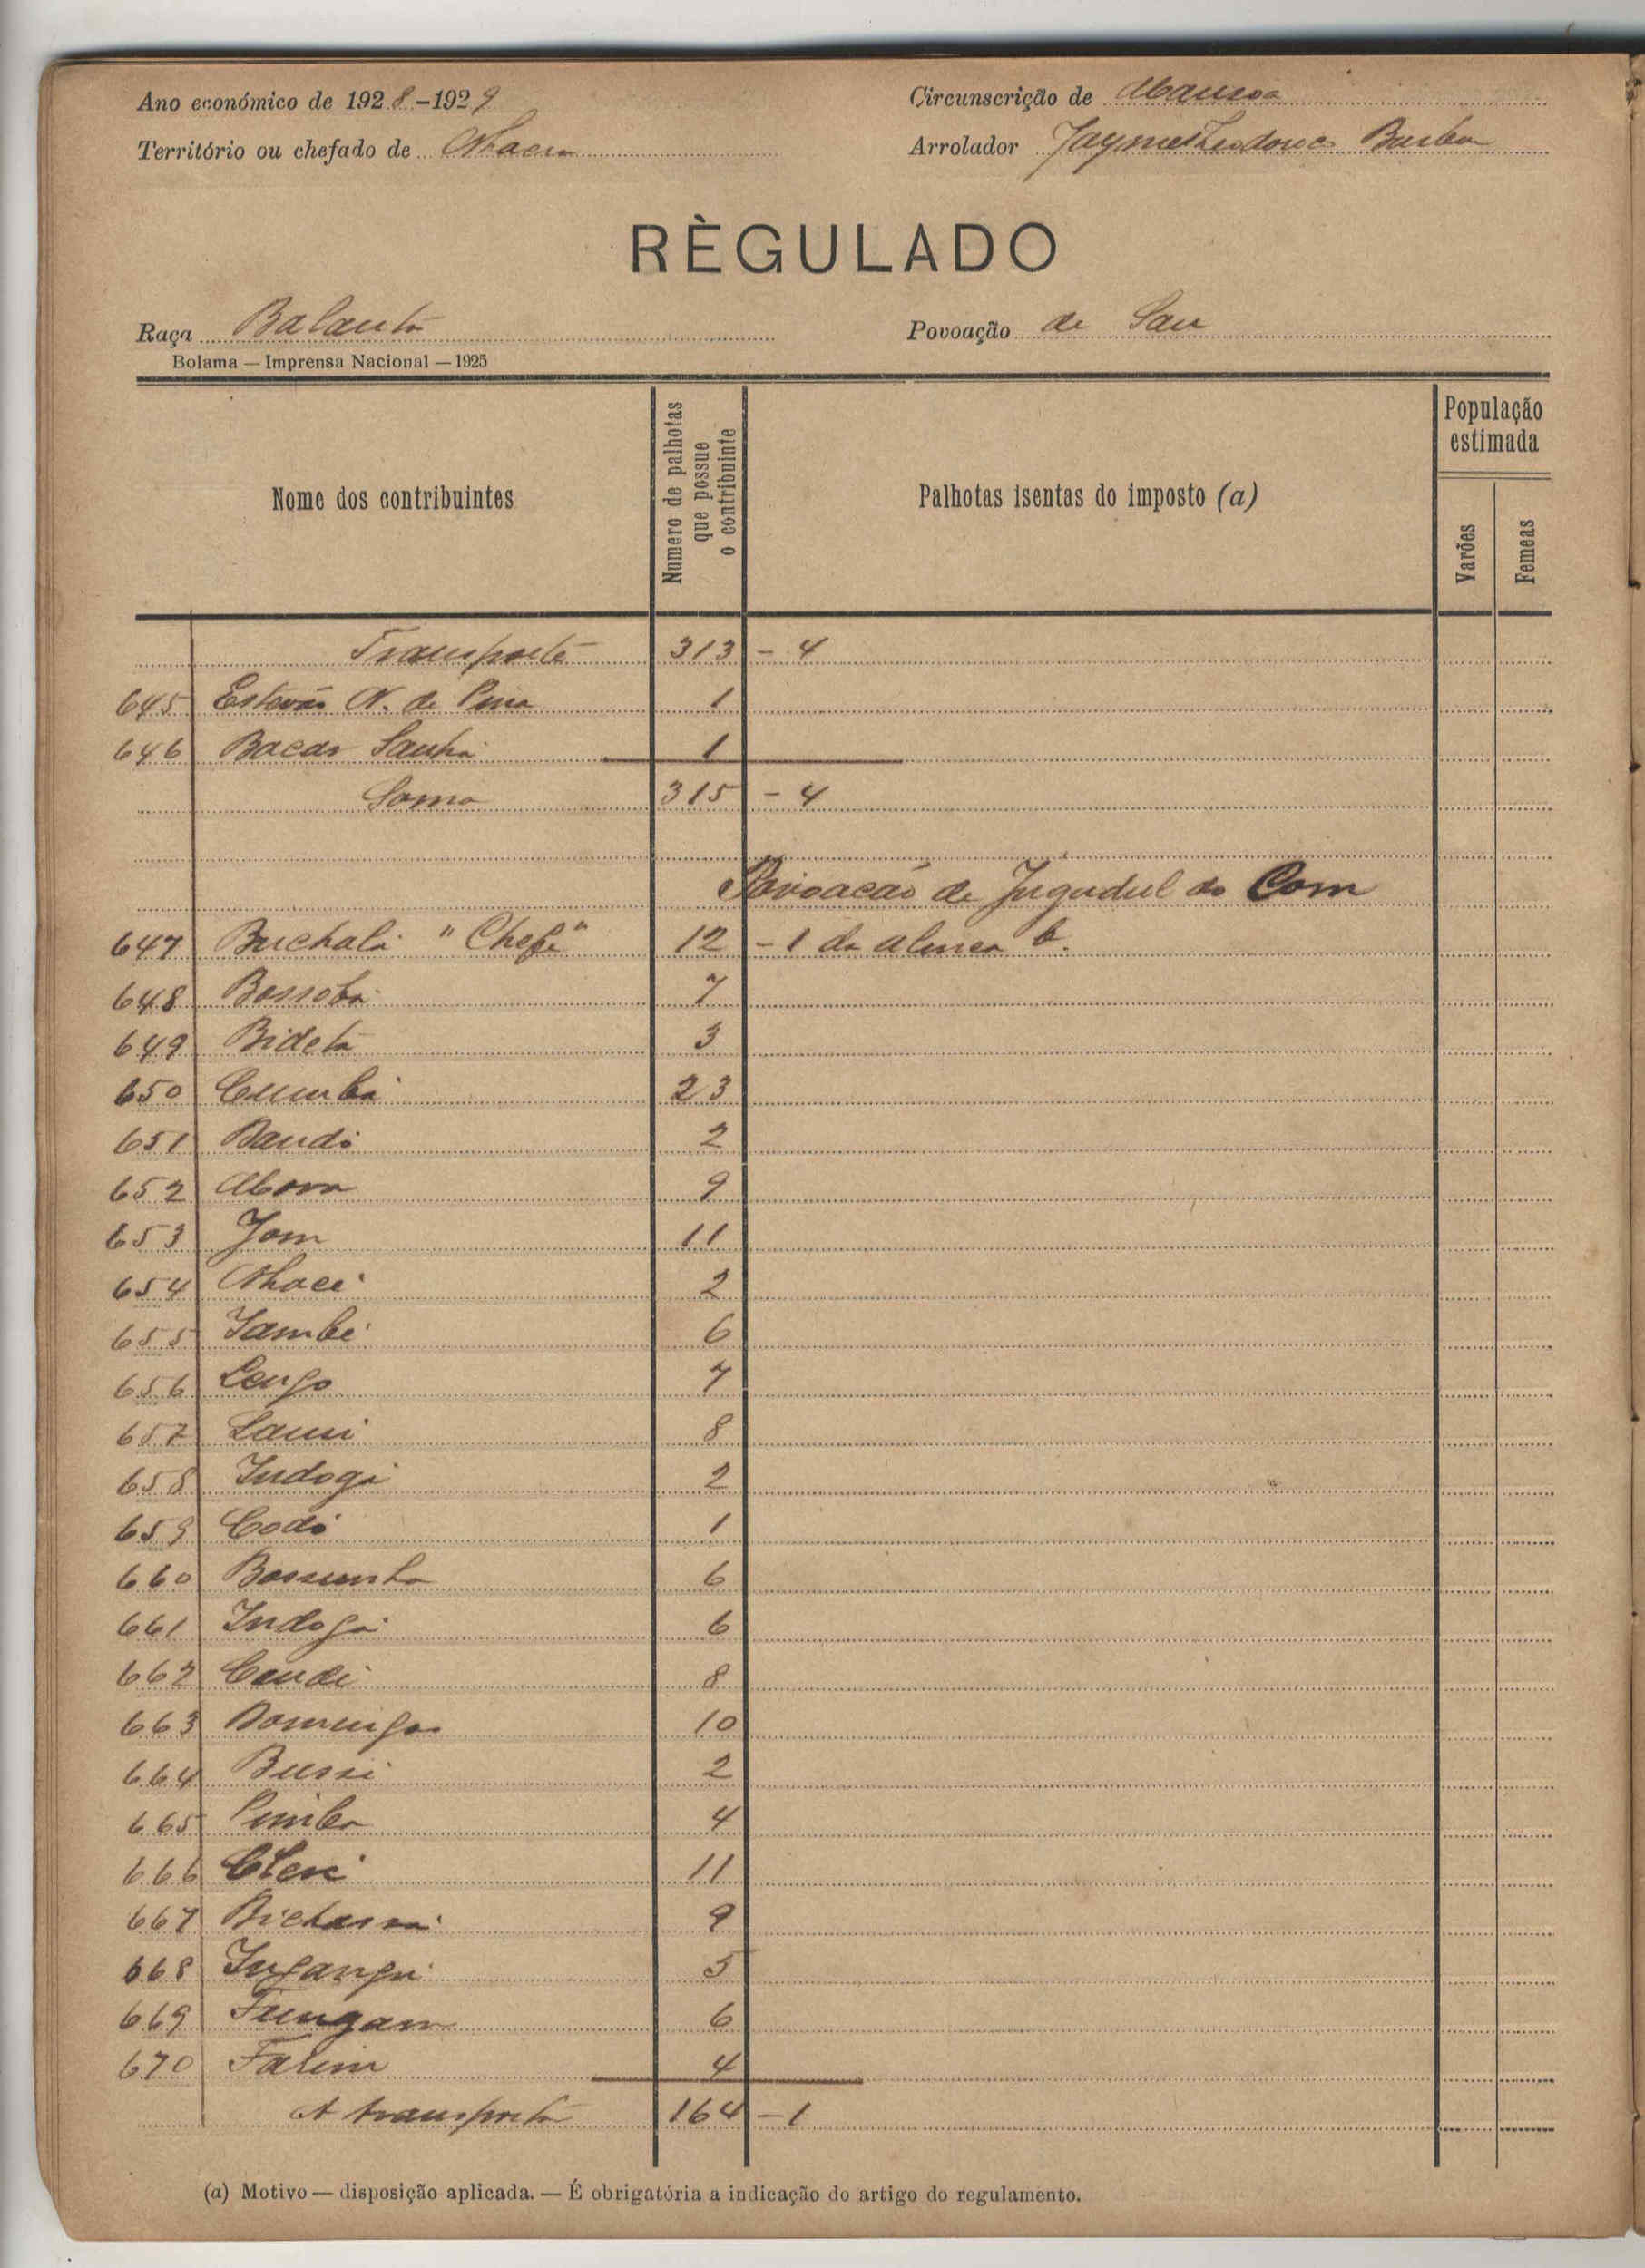 Ano económico de 1928-1929
Circunscrição de Mansoa
Território ou chefado de Nhacra
Arrolador Jayme Theodorico Barbosa
RÈGULADO
Raça Balanta
Povoação de San
Bolama — Imprensa Nacional — 1925
Nome dos contribuintes
Numero de palhotas que possue o contribuinte
Palhotas isentas do imposto (a)
População estimada
Varões
Femeas
Transporte 313 - 4
645 Estevão N. de Pina 1
646 Bacar Sanhá 1
Soma 315 - 4
Povoacão de Jugudul do Com
647 Buchalá "Chefe" 12 - 1 da alinea b.
648 Bossobá 7
649 Bideta 3
650 Cumbá 23
651 Bandi 2
652 9
653 Jom 11
654 2
655 Jambé 6
656 Lengo 7
657 8
658 Indogá 2
659 Codó 1
660 6
661 Indogá 6
662 8
663 Domingos 10
664 Bussi 2
665 4
666 11
667 9
668 5
669 Fungam 6
670 Falim 4
A transportar 164 - 1
(a) Motivo — disposição aplicada. — É obrigatória a indicação do artigo do regulamento.